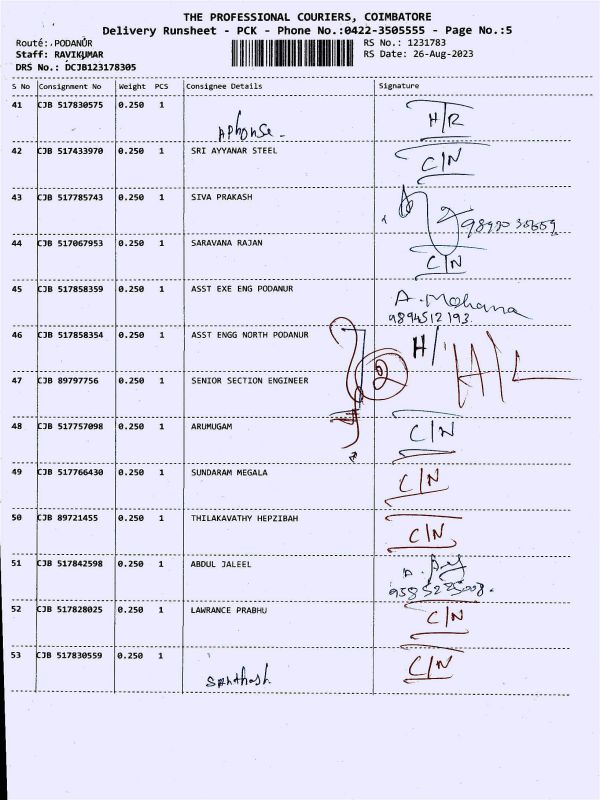 THE PROFESSIONAL COURIERS, COIMBATORE
Delivery Runsheet - PCK - Phone No.:0422-3505555 - Page No.:5
Route: PODANUR RS No.: 1231783
Staff: RAVIKUMAR RS Date: 26-Aug-2023
DRS No.: DCJB123178305
S No Consignment No Weight PCS Consignee Details Signature
41 CJB 517830575 0.250 1 Aphonse H/R
42 CJB 517433970 0.250 1 SRI AYYANAR STEEL C/N
43 CJB 517785743 0.250 1 SIVA PRAKASH
44 CJB 517067953 0.250 1 SARAVANA RAJAN C/N
45 CJB 517858359 0.250 1 ASST EXE ENG PODANUR A. Mohana
9894512193
46 CJB 517858354 0.250 1 ASST ENGG NORTH PODANUR H/
47 CJB 89797756 0.250 1 SENIOR SECTION ENGINEER 2
48 CJB 517757098 0.250 1 ARUMUGAM C/N
49 CJB 517766430 0.250 1 SUNDARAM MEGALA C/N
50 CJB 89721455 0.250 1 THILAKAVATHY HEPZIBAH C/N
51 CJB 517842598 0.250 1 ABDUL JALEEL
52 CJB 517828025 0.250 1 LAWRANCE PRABHU C/N
53 CJB 517830559 0.250 1 Santhosh C/N